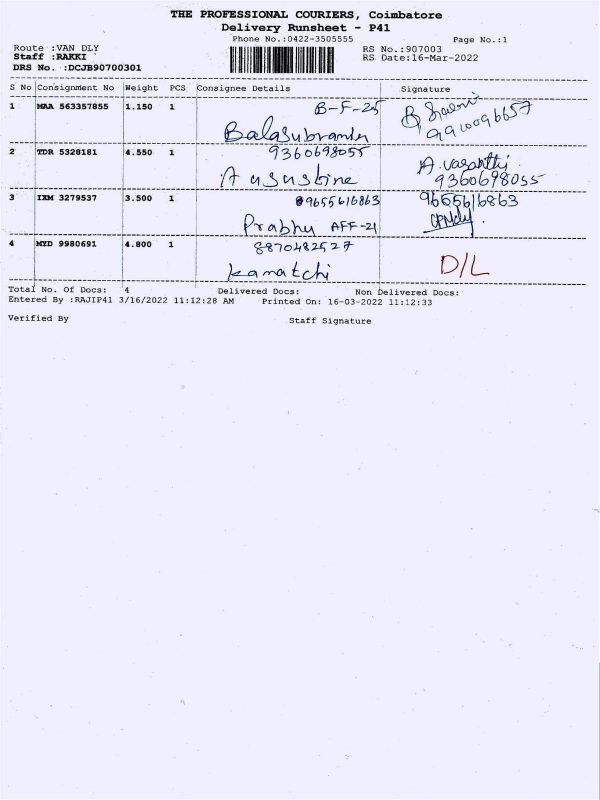 THE PROFESSIONAL COURIERS, Coimbatore
Delivery Runsheet - P41
Phone No.:0422-3505555 Page No.:1
Route :VAN DLY RS No.:907003
Staff :RAKKI RS Date:16-Mar-2022
DRS No. :DCJB90700301
S No Consignment No Weight PCS Consignee Details Signature
1 MAA 563357855 1.150 1 B-F-25
Balasubramaniam 9910096657
2 TDR 5328181 4.550 1 9360698055 A. Vasanthi
Augustine 9360698055
3 IXM 3279537 3.500 1 9655616863 9655616863
Prabhu AFF-21
4 MYD 9980691 4.800 1 8870482527
kamatchi D/L
Total No. Of Docs: 4 Delivered Docs: Non Delivered Docs:
Entered By :RAJIP41 3/16/2022 11:12:28 AM Printed On: 16-03-2022 11:12:33
Verified By Staff Signature